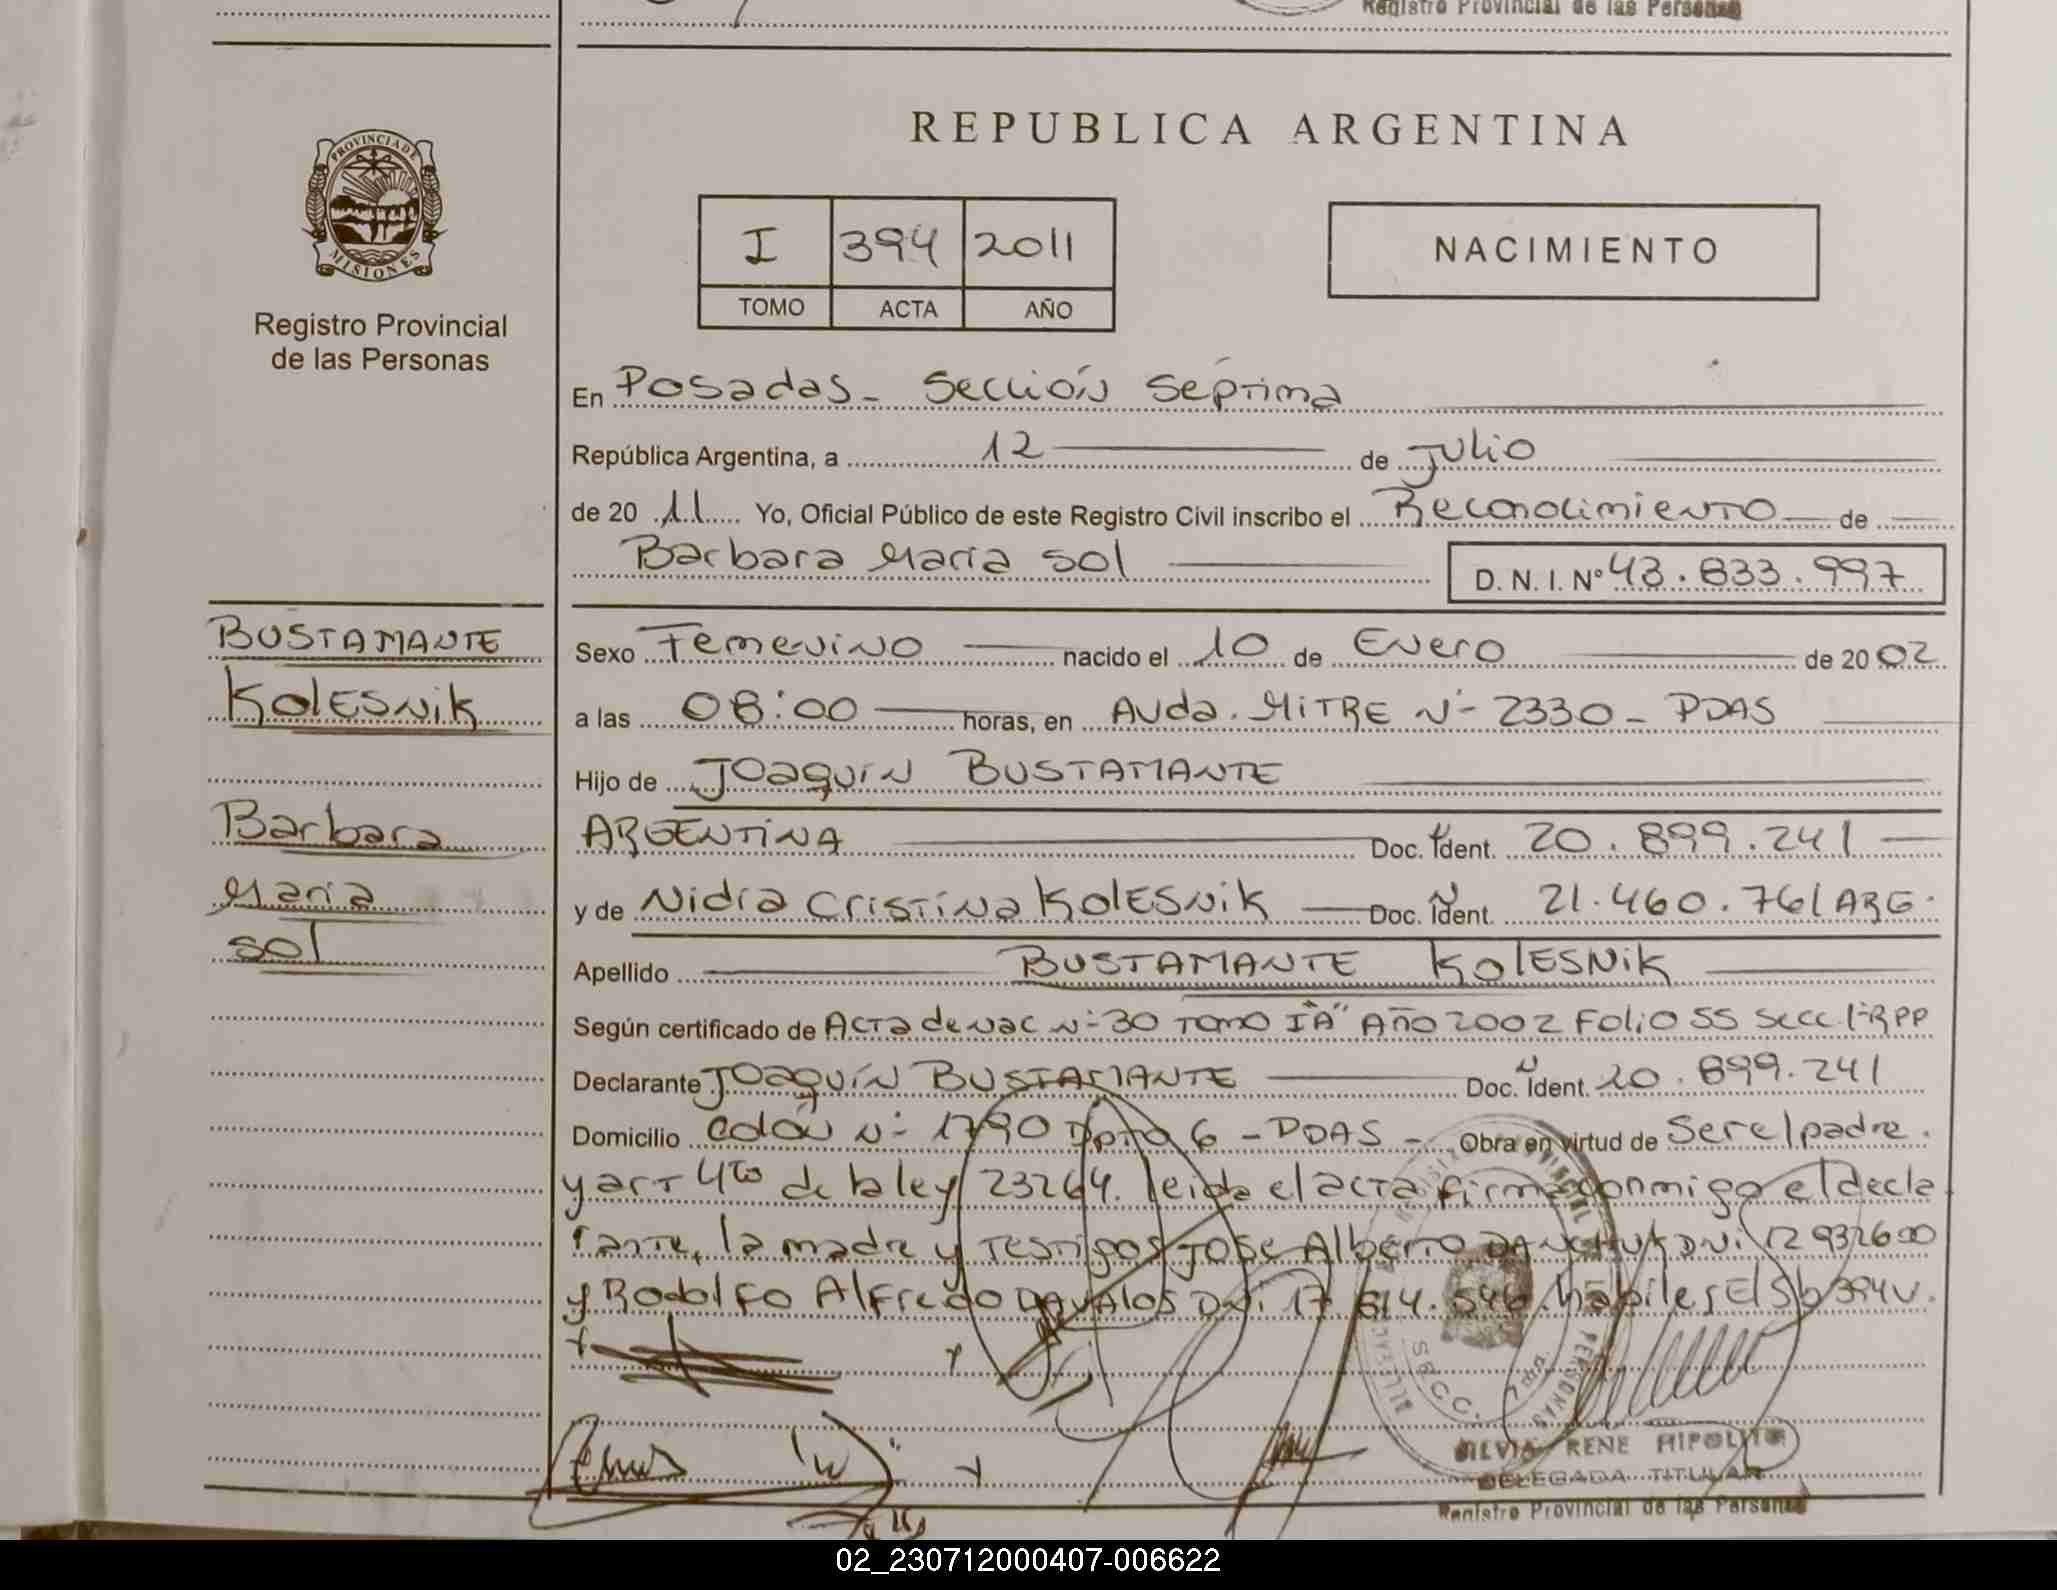 Registro Provincial de las Personas
PROVINCIA DE
MISIONES
Registro Provincial
de las Personas
REPUBLICA ARGENTINA
I 394 2011
TOMO ACTA AÑO
NACIMIENTO
En Posadas - Sección Séptima
República Argentina, a 12 de Julio
de 20 11 Yo, Oficial Público de este Registro Civil inscribo el Reconocimiento de
Barbara Maria Sol
D. N. I. Nº 43.833.997
BUSTAMANTE
KOLESNIK
Barbara
Maria
Sol
Sexo Femenino nacido el 10 de Enero de 20 02
a las 08:00 horas, en Avda. MITRE Nº 2330 - PDAS
Hijo de Joaquín BUSTAMANTE
ARGENTINA Doc. Ident. Nº 20.899.241
y de Nidia Cristina KOLESNIK Doc. Ident. N 21.460.761 ARG.
Apellido BUSTAMANTE KOLESNIK
Según certificado de Acta de nac Nº 30 Tomo I "A" Año 2002 Folio 55 Secc 1ª RPP
Declarante Joaquín BUSTAMANTE Doc. Ident. N 20.899.241
Domicilio Colón Nº 1790 Dpto 6 - PDAS - Obra en virtud de Ser el padre.
y art 4to de la ley 23264. leida el acta firma conmigo el decla
rante, la madre y Testigos Jose Alberto DANCHUK DNI 12932600
y Rodolfo Alfredo DAVALOS DNI 17.614.546. habiles El Sb 394 V.
SECC.
SILVIA RENE HIPOLITO
DELEGADA TITULAR
Registro Provincial de las Personas
02_230712000407-006622